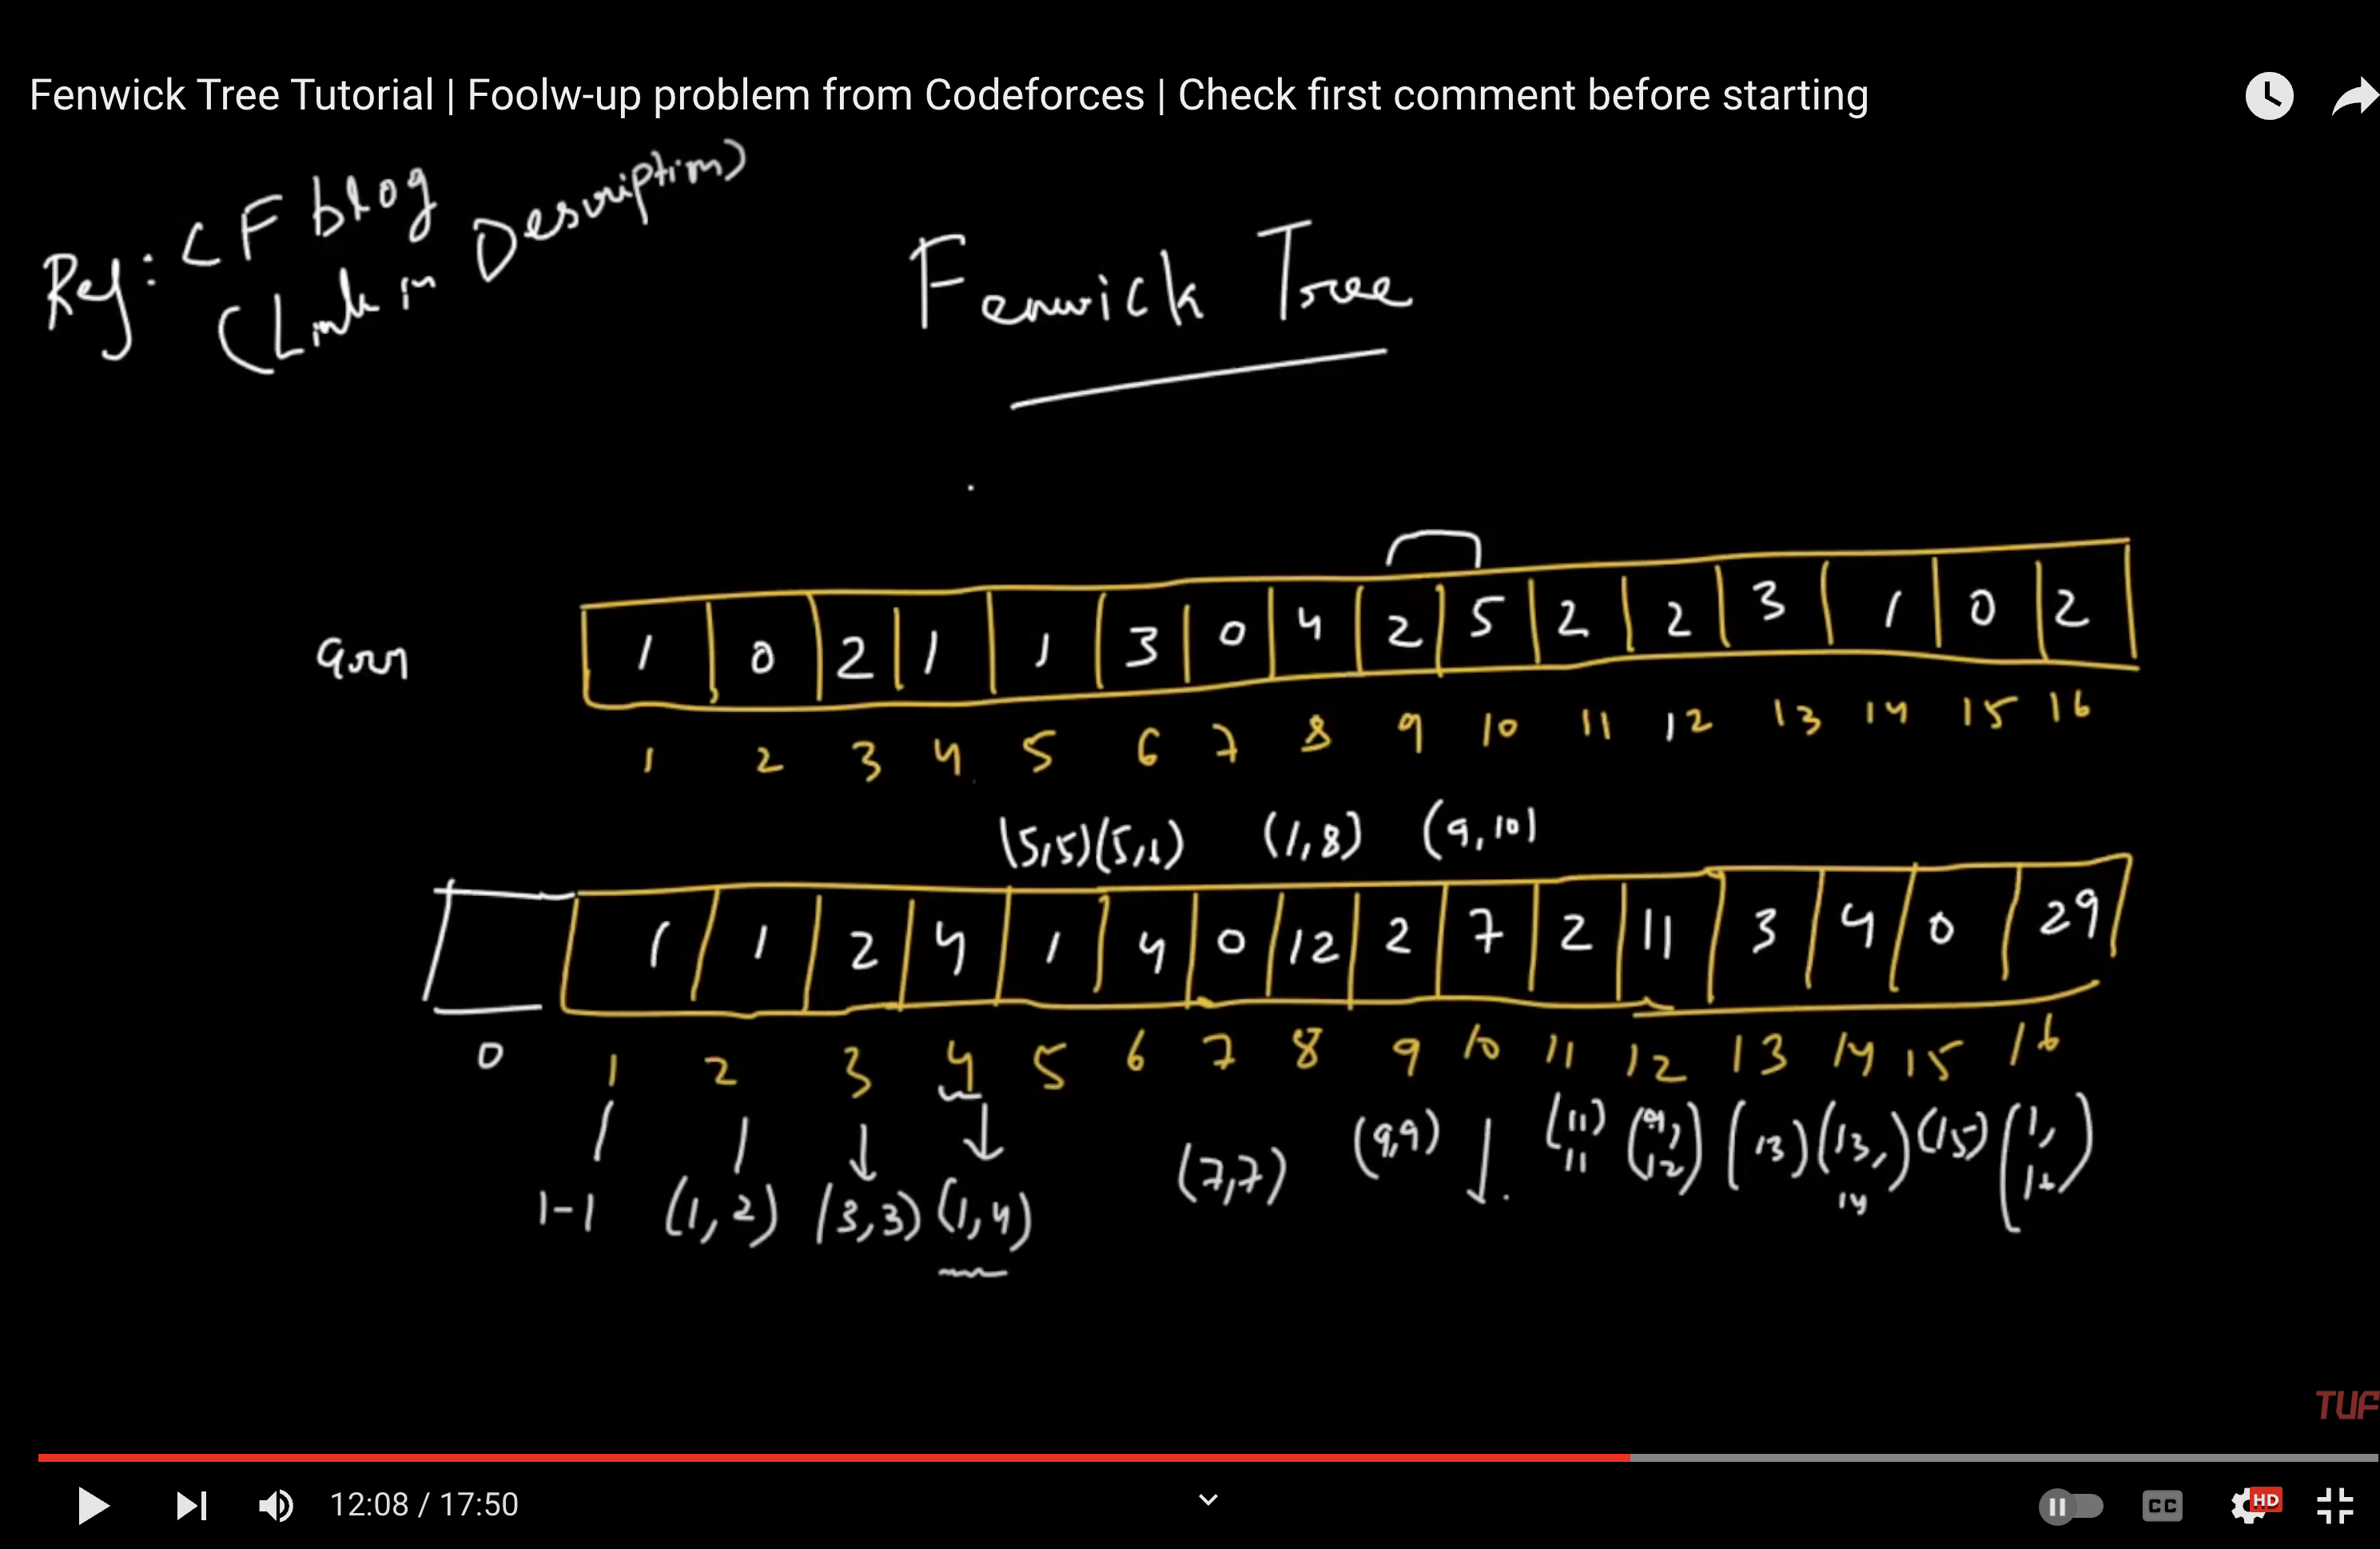 Fenwick Tree Tutorial | Foolw-up problem from Codeforces | Check first comment before starting
Ref: CF blog
(Link in Description)
Fenwick Tree
arr 1 0 2 1 1 3 0 4 2 5 2 2 3 1 0 2
1 2 3 4 5 6 7 8 9 10 11 12 13 14 15 16
(5,5) (5,6) (1,8) (9,10)
1 1 2 4 1 4 0 12 2 7 2 11 3 4 0 29
0 1 2 3 4 5 6 7 8 9 10 11 12 13 14 15 16
1-1 (1,2) (3,3) (1,4) (7,7) (9,9) (11 11) (9,12) (13) (13,14) (15) (1,16)
TUF
12:08 / 17:50
CC
HD